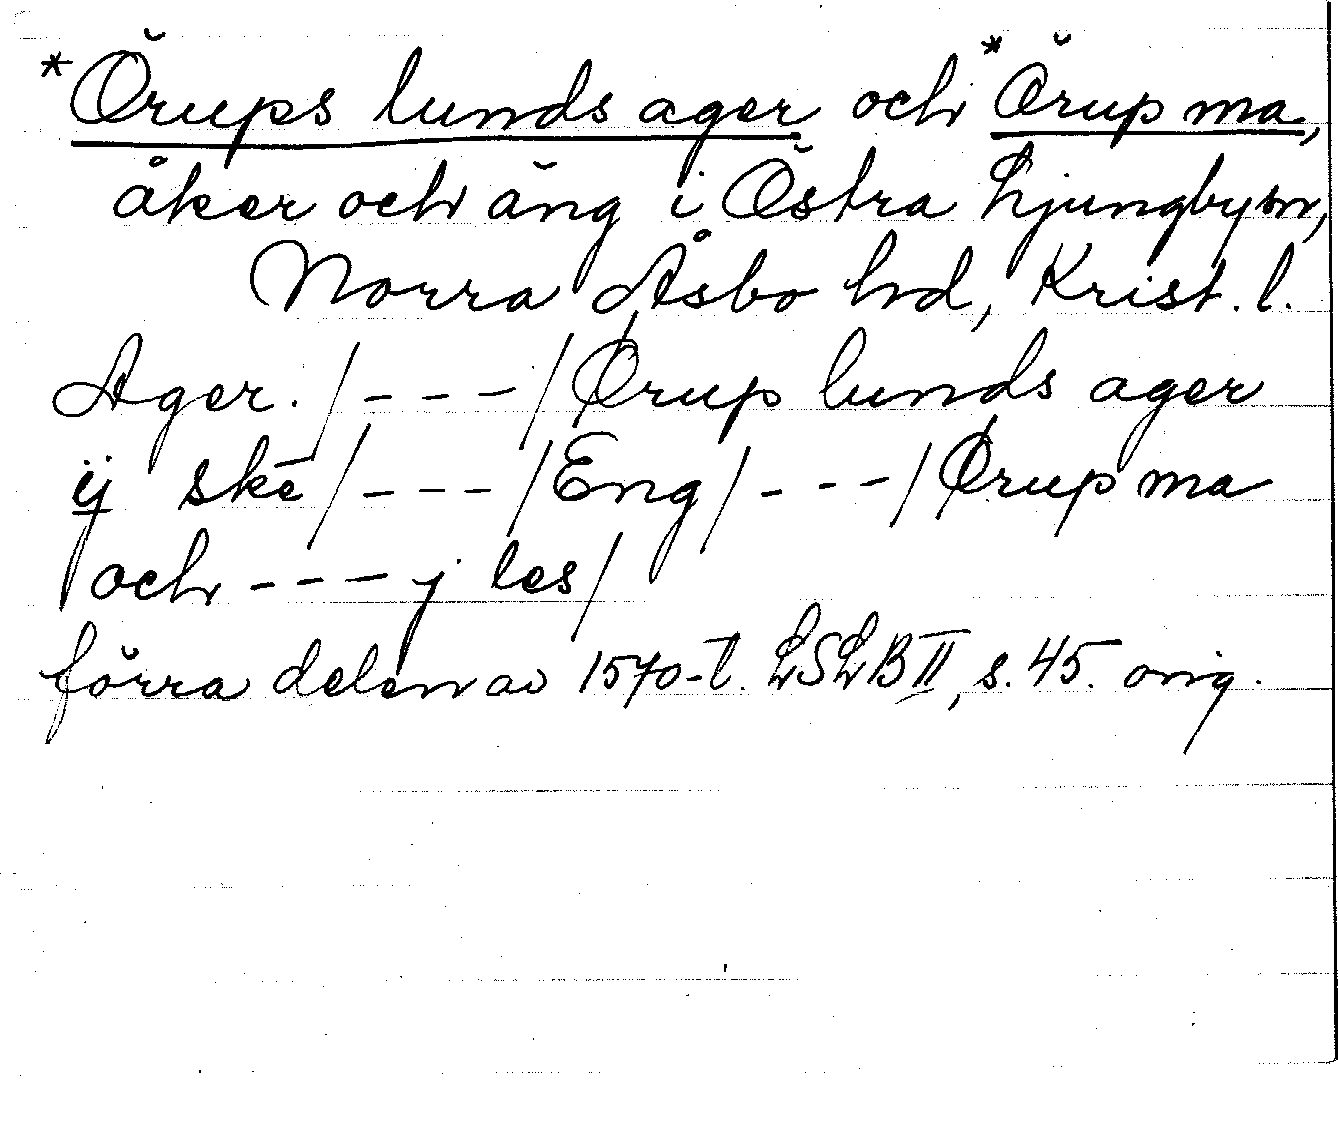 *Örups lunds ager och *Örup ma,
åker och äng i Östra Ljungby sn,
Norra Åsbo hd, Krist. l.
Ager. /---/ Ørup lunds ager
ij skē /---/ Eng /---/ Ørup ma
och --- j les/
förra delen av 1570-t. LSLB II, s. 45. orig.